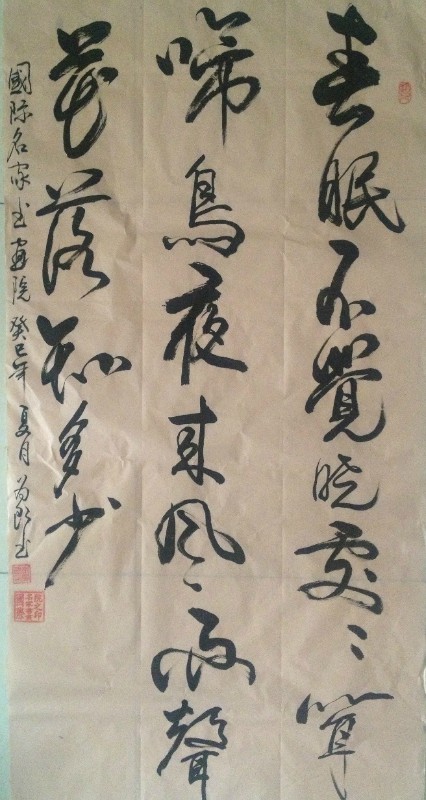 春眠不覺晓處〻聞
啼鳥夜来風雨聲
花落知多少
國际名家书画院 癸巳年 夏月 书